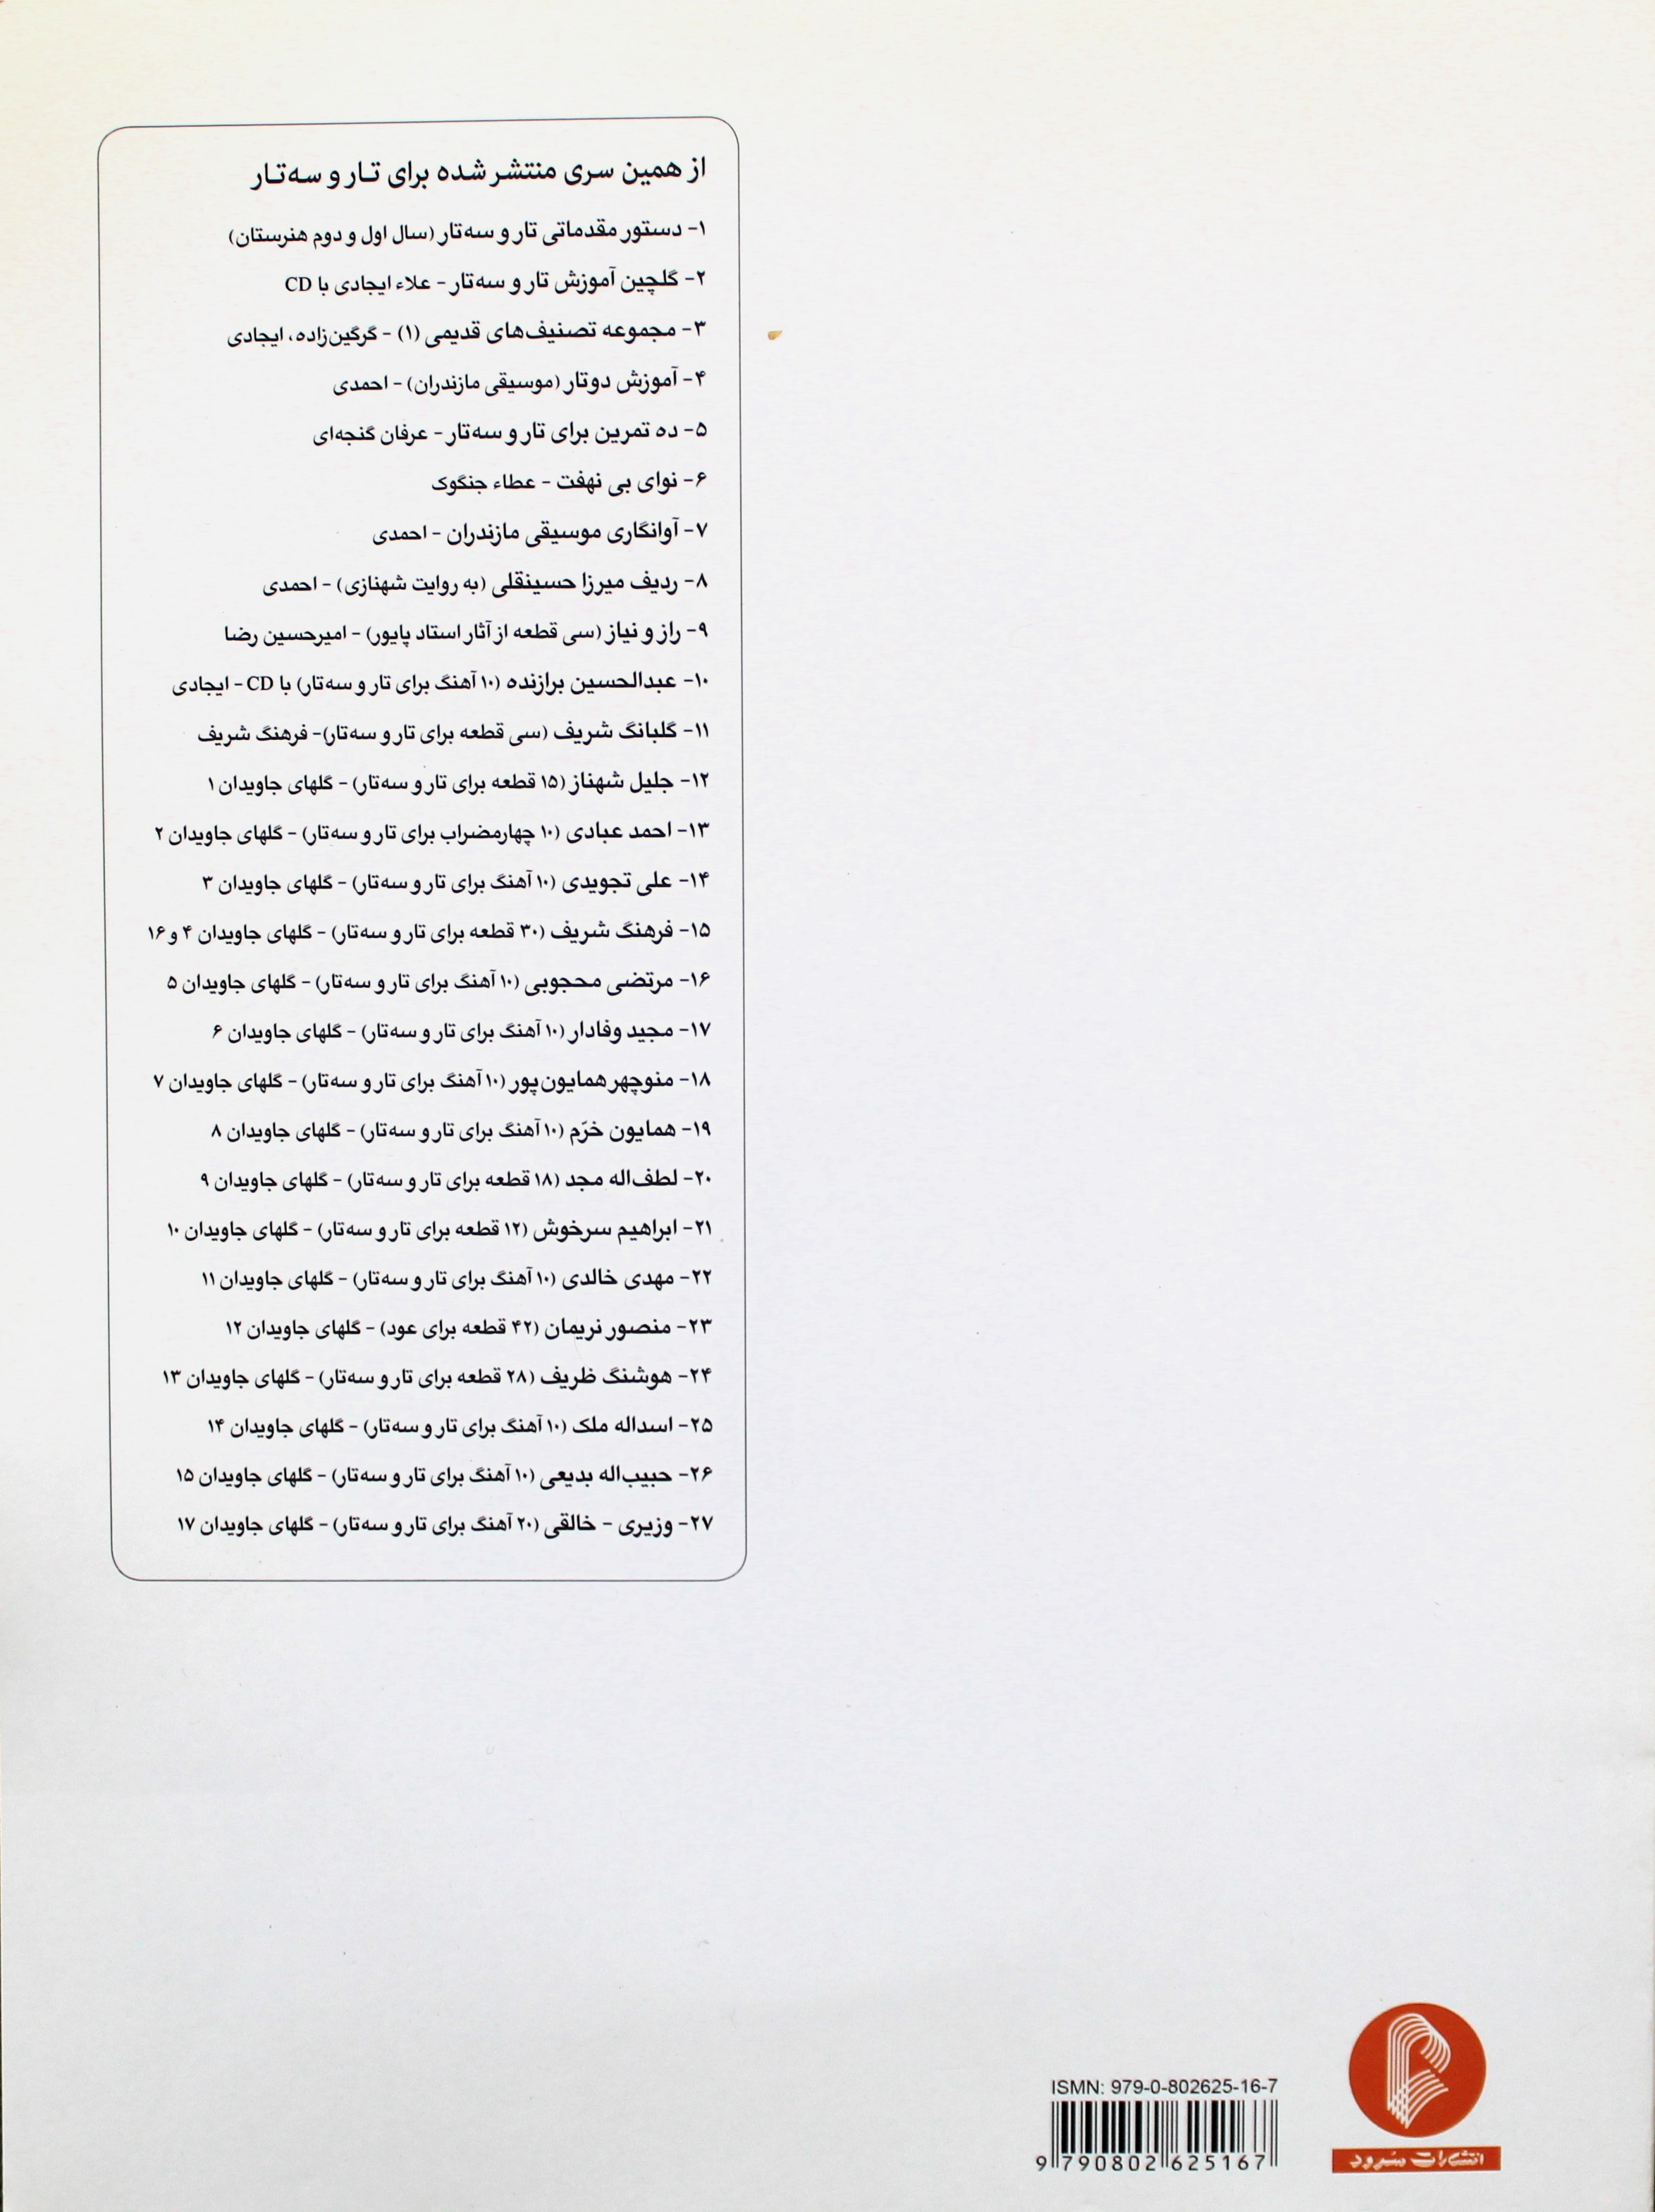 از همین سری منتشر شده برای تـار و سه‌تـار
۱- دستور مقدماتی تار و سه‌تار (سال اول و دوم هنرستان)
۲- گلچین آموزش تار و سه‌تار - علاء ایجادی با CD
۳- مجموعه تصنیف‌های قدیمی (۱) - گرگین‌زاده، ایجادی
۴- آموزش دوتار (موسیقی مازندران) - احمدی
۵- ده تمرین برای تار و سه‌تار - عرفان گنجه‌ای
۶- نوای بی نهفت - عطاء جنگوک
۷- آوانگاری موسیقی مازندران - احمدی
۸- ردیف میرزا حسینقلی (به روایت شهنازی) - احمدی
۹- راز و نیاز (سی قطعه از آثار استاد پایور) - امیرحسین رضا
۱۰- عبدالحسین برازنده (۱۰ آهنگ برای تار و سه‌تار) با CD - ایجادی
۱۱- گلبانگ شریف (سی قطعه برای تار و سه‌تار)- فرهنگ شریف
۱۲- جلیل شهناز (۱۵ قطعه برای تار و سه‌تار) - گلهای جاویدان ۱
۱۳- احمد عبادی (۱۰ چهارمضراب برای تار و سه‌تار) - گلهای جاویدان ۲
۱۴- علی تجویدی (۱۰ آهنگ برای تار و سه‌تار) - گلهای جاویدان ۳
۱۵- فرهنگ شریف (۳۰ قطعه برای تار و سه‌تار) - گلهای جاویدان ۴ و ۱۶
۱۶- مرتضی محجوبی (۱۰ آهنگ برای تار و سه‌تار) - گلهای جاویدان ۵
۱۷- مجید وفادار (۱۰ آهنگ برای تار و سه‌تار) - گلهای جاویدان ۶
۱۸- منوچهر همایون‌پور (۱۰ آهنگ برای تار و سه‌تار) - گلهای جاویدان ۷
۱۹- همایون خرّم (۱۰ آهنگ برای تار و سه‌تار) - گلهای جاویدان ۸
۲۰- لطف‌اله مجد (۱۸ قطعه برای تار و سه‌تار) - گلهای جاویدان ۹
۲۱- ابراهیم سرخوش (۱۲ قطعه برای تار و سه‌تار) - گلهای جاویدان ۱۰
۲۲- مهدی خالدی (۱۰ آهنگ برای تار و سه‌تار) - گلهای جاویدان ۱۱
۲۳- منصور نریمان (۴۲ قطعه برای عود) - گلهای جاویدان ۱۲
۲۴- هوشنگ ظریف (۲۸ قطعه برای تار و سه‌تار) - گلهای جاویدان ۱۳
۲۵- اسداله ملک (۱۰ آهنگ برای تار و سه‌تار) - گلهای جاویدان ۱۴
۲۶- حبیب‌اله بدیعی (۱۰ آهنگ برای تار و سه‌تار) - گلهای جاویدان ۱۵
۲۷- وزیری - خالقی (۲۰ آهنگ برای تار و سه‌تار) - گلهای جاویدان ۱۷
ISMN: 979-0-802625-16-7
9 790802 625167
انتشارات سرود